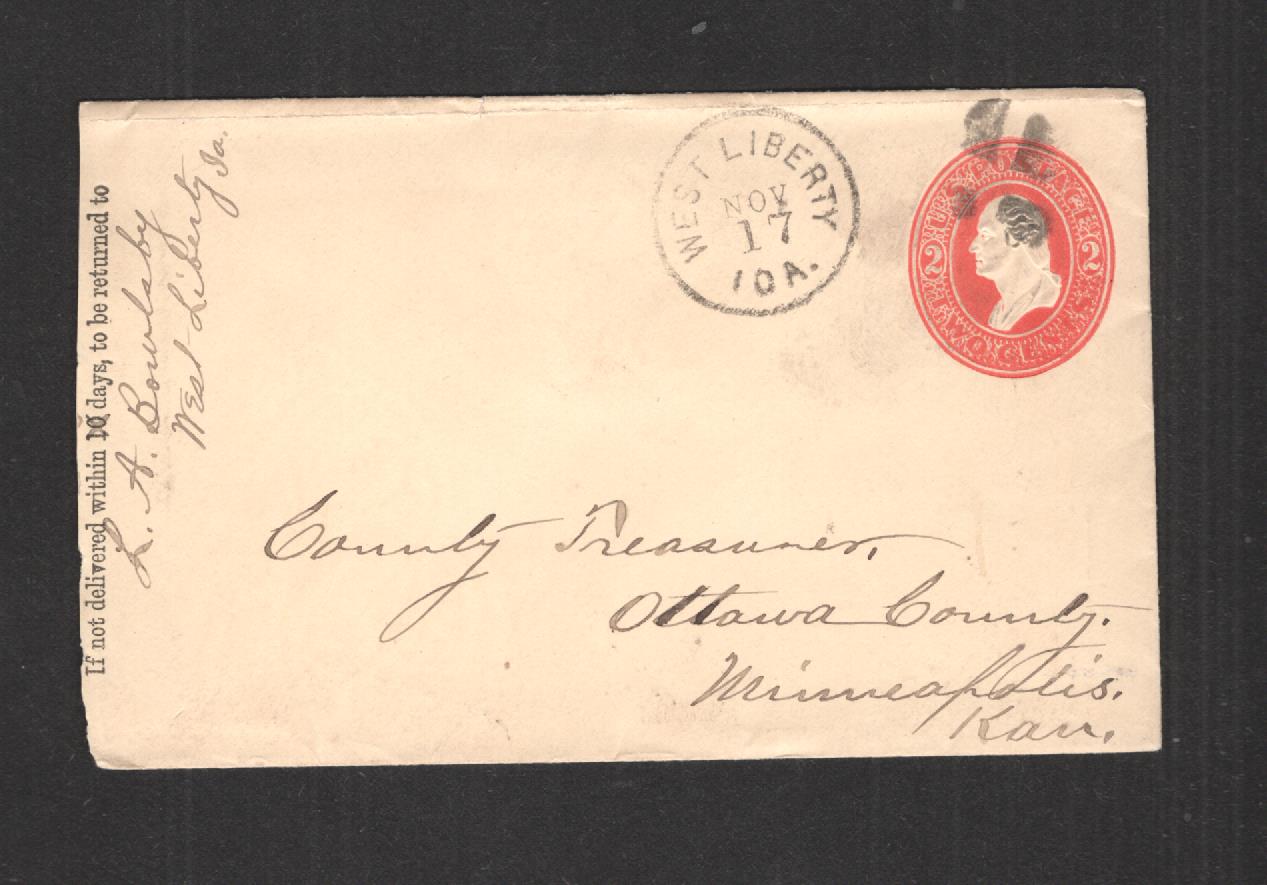 If not delivered within 10 days, to be returned to
L. A. Bowlsby
West Liberty Ia.
WEST LIBERTY
NOV
17
IOA.
U.S. POSTAGE
2 2
TWO CENTS
County Treasurer,
Ottawa County.
Minneapolis.
Kan.